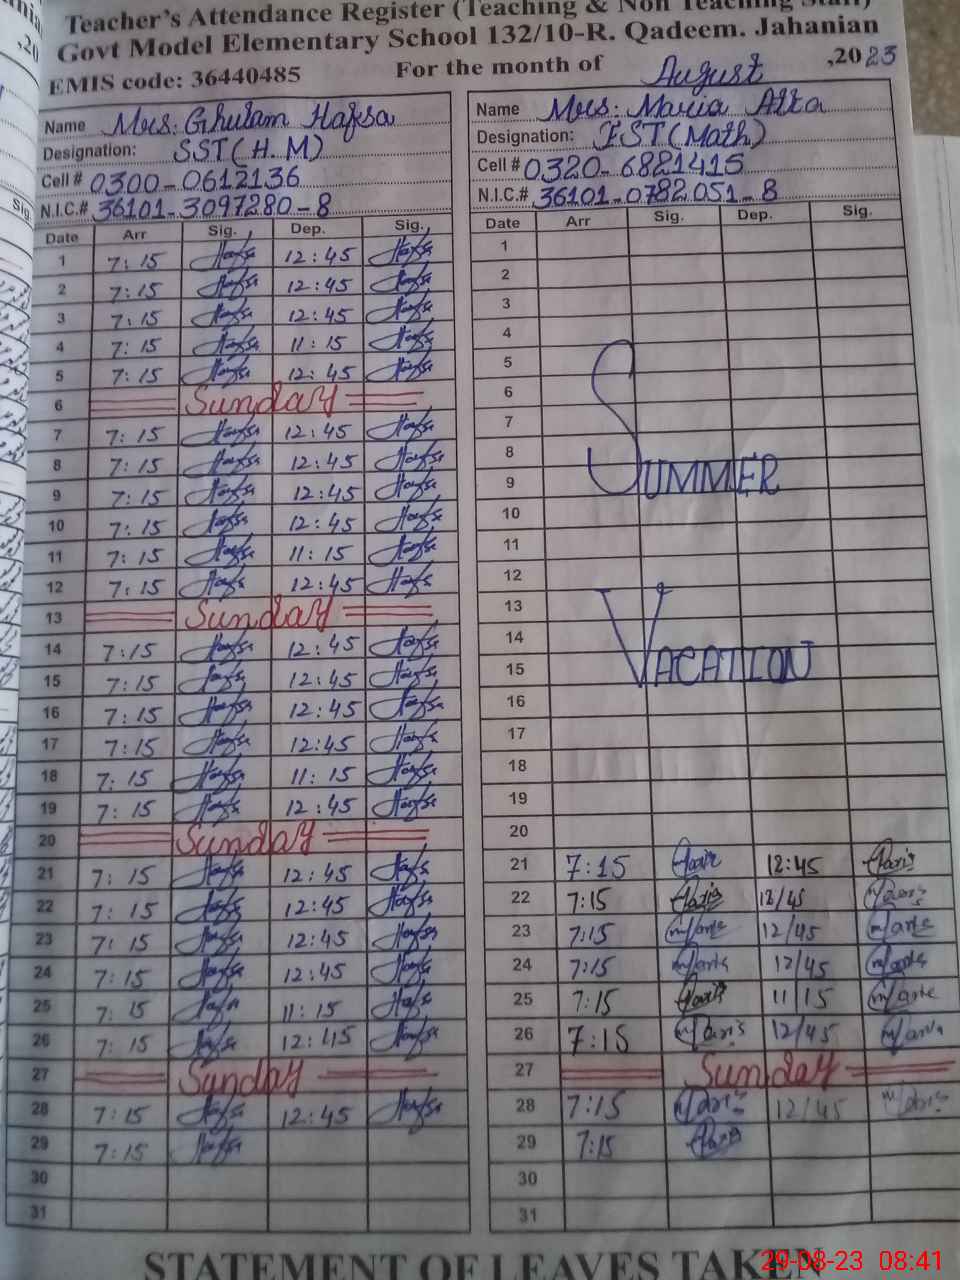 Teacher's Attendance Register (Teaching & Non Teaching Staff)
Govt Model Elementary School 132/10-R. Qadeem. Jahanian
EMIS code: 36440485 For the month of August ,2023
Name Mrs: Ghulam Hafsa
Designation: SST (H.M)
Cell # 0300-0612136
N.I.C.# 36101-3097280-8
Date Arr Sig. Dep. Sig.
1 7:15 Hafsa 12:45 Hafsa
2 7:15 Hafsa 12:45 Hafsa
3 7:15 Hafsa 12:45 Hafsa
4 7:15 Hafsa 11:15 Hafsa
5 7:15 Hafsa 12:45 Hafsa
6 Sunday
7 7:15 Hafsa 12:45 Hafsa
8 7:15 Hafsa 12:45 Hafsa
9 7:15 Hafsa 12:45 Hafsa
10 7:15 Hafsa 12:45 Hafsa
11 7:15 Hafsa 11:15 Hafsa
12 7:15 Hafsa 12:45 Hafsa
13 Sunday
14 7:15 Hafsa 12:45 Hafsa
15 7:15 Hafsa 12:45 Hafsa
16 7:15 Hafsa 12:45 Hafsa
17 7:15 Hafsa 12:45 Hafsa
18 7:15 Hafsa 11:15 Hafsa
19 7:15 Hafsa 12:45 Hafsa
20 Sunday
21 7:15 Hafsa 12:45 Hafsa
22 7:15 Hafsa 12:45 Hafsa
23 7:15 Hafsa 12:45 Hafsa
24 7:15 Hafsa 12:45 Hafsa
25 7:15 Hafsa 11:15 Hafsa
26 7:15 Hafsa 12:45 Hafsa
27 Sunday
28 7:15 Hafsa 12:45 Hafsa
29 7:15 Hafsa
30
31
Name Mrs: Maria Atta
Designation: EST (Math)
Cell # 0320-6821415
N.I.C.# 36101-0782051-8
Date Arr Sig. Dep. Sig.
1
2
3
4
5
6
7
8
9 SUMMER
10
11
12
13
14
15 VACATION
16
17
18
19
20
21 7:15 12:45
22 7:15 12/45
23 7:15 12/45
24 7:15 12/45
25 7:15 11/15
26 7:15 12/45
27 Sunday
28 7:15 12/45
29 7:15
30
31
STATEMENT OF LEAVES TAKEN
29-08-23 08:41